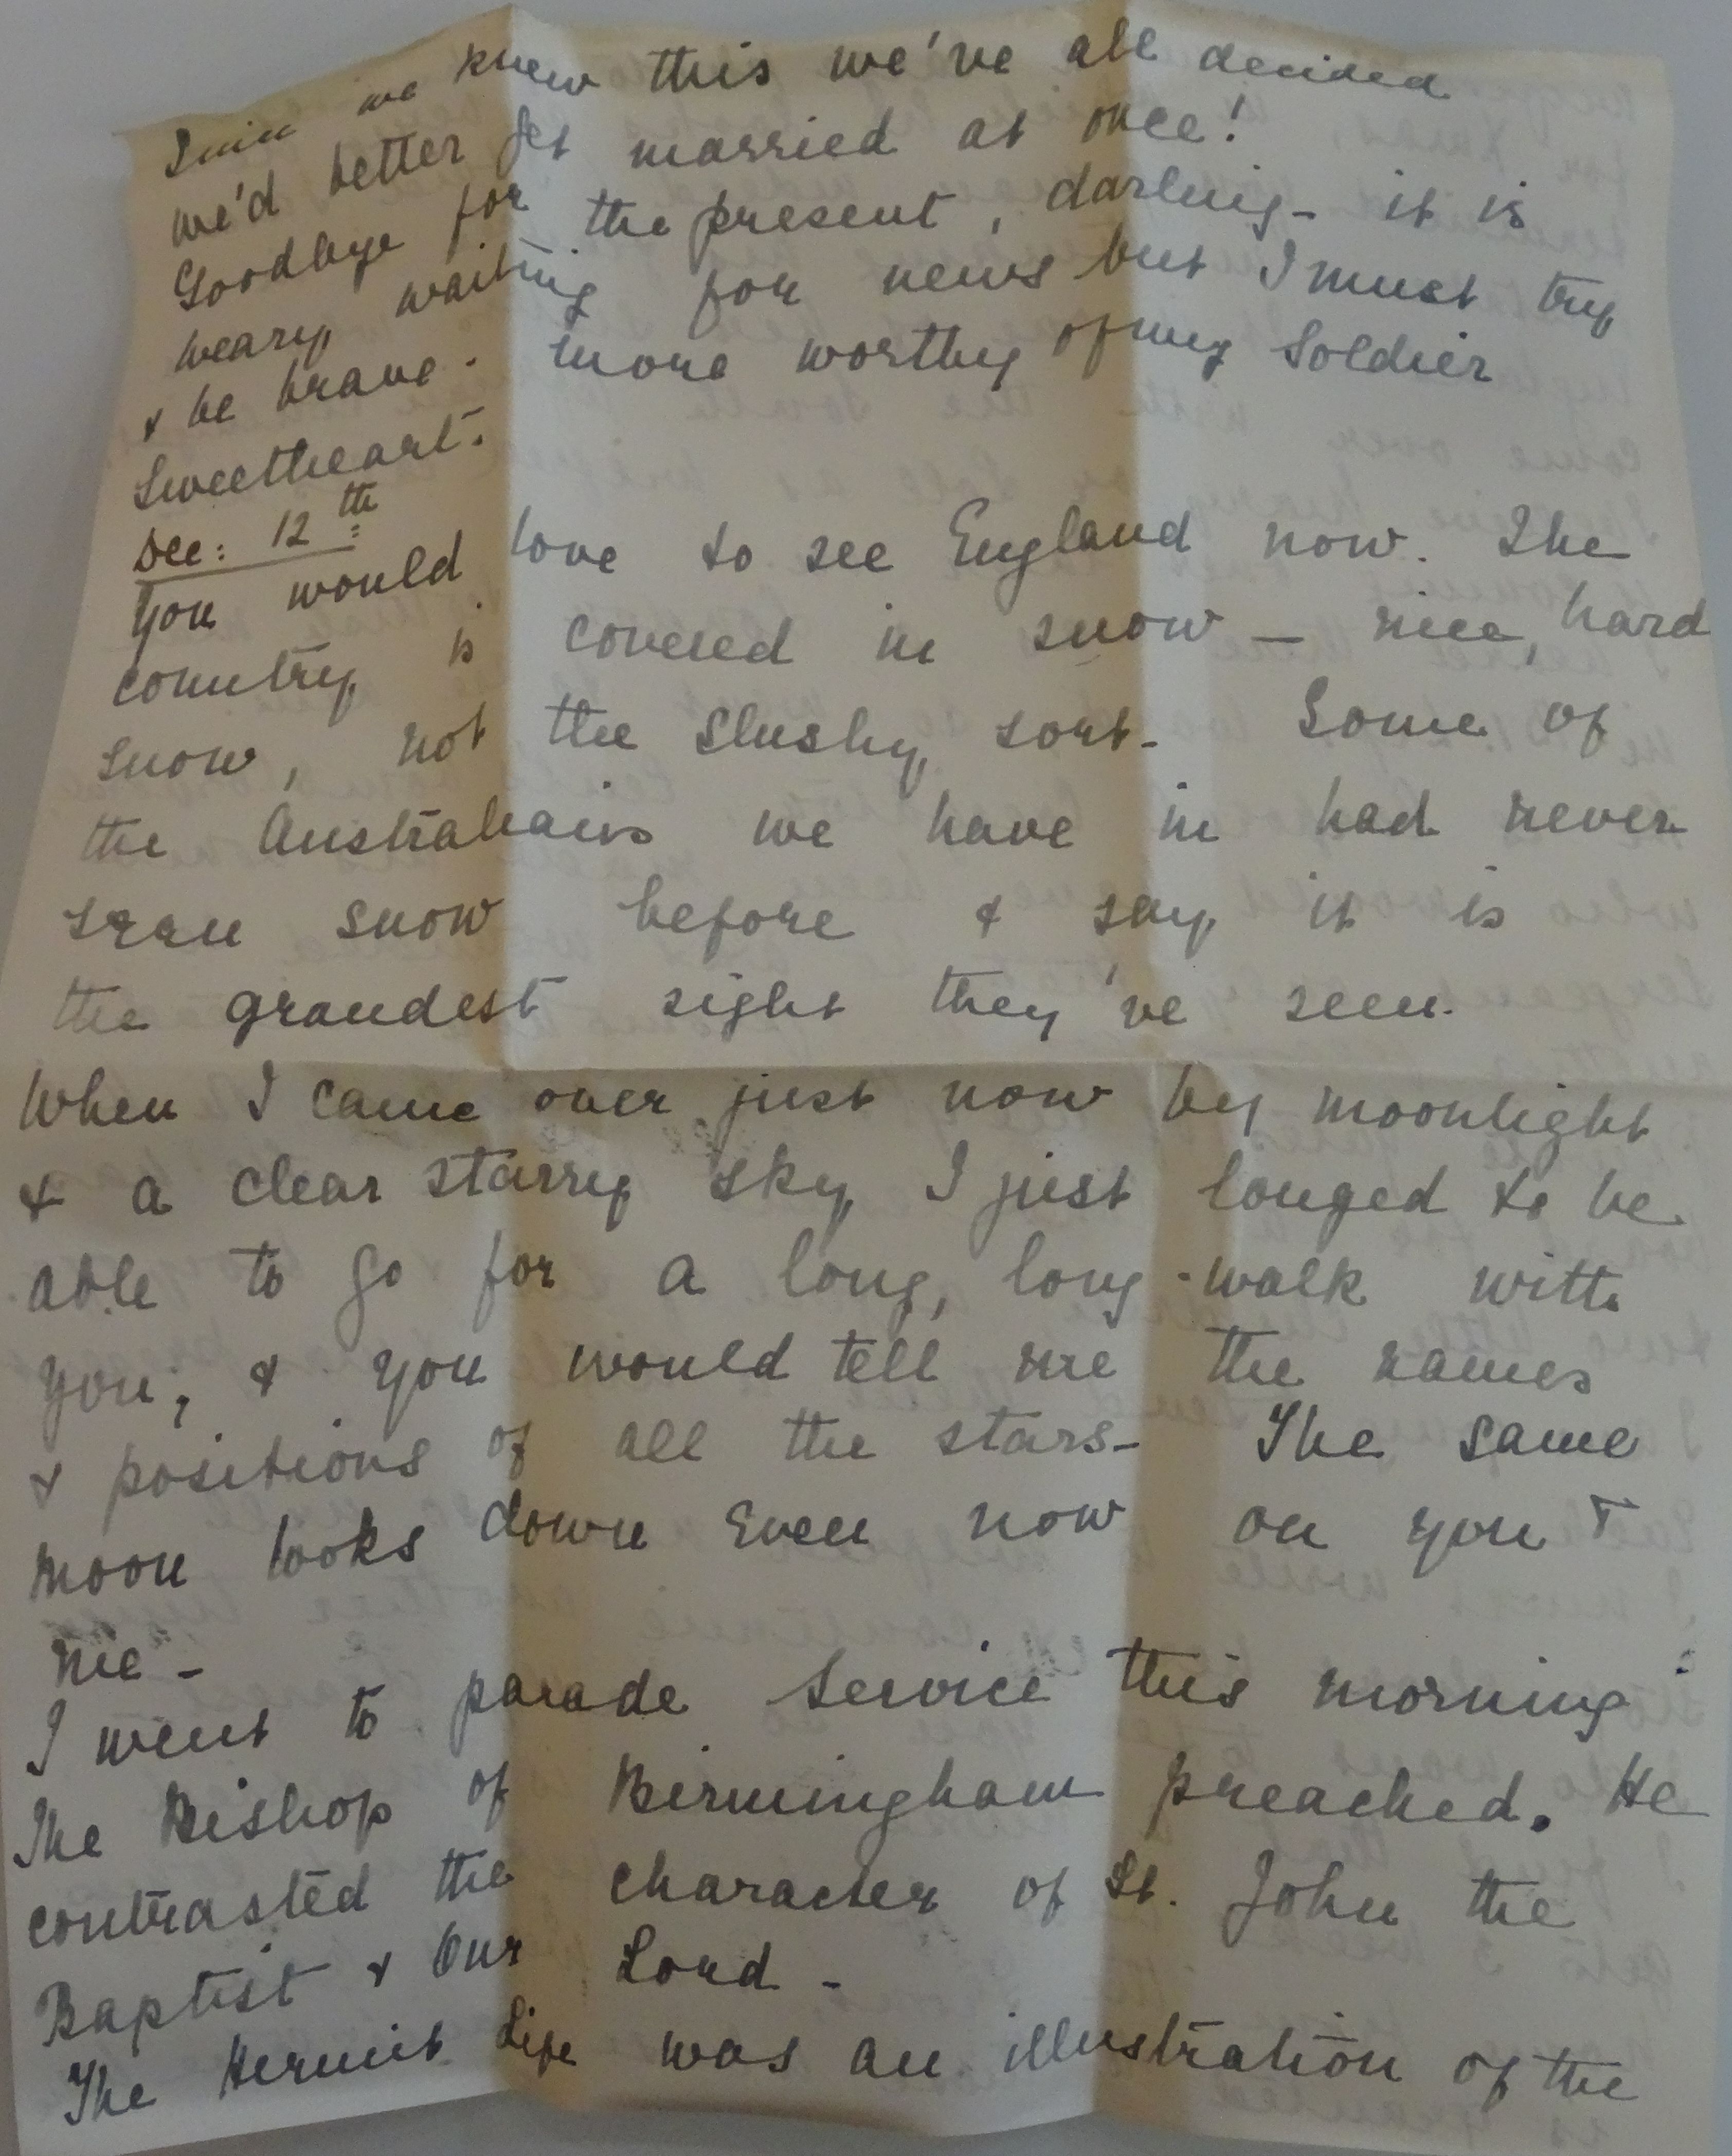 Since we knew this we've all decided
we'd better get married at once!
Goodbye for the present, darling - it is
weary waiting for news but I must try
& be brave. more worthy of my Soldier
Sweetheart.
Dec: 12th
You would love to see England now. The
country is covered in snow — nice, hard
snow, not the slushy sort - Some of
the Australians we have in had never
seen snow before & say it is
the grandest sight they've seen.
When I came over just now by moonlight
& a clear starry sky, I just longed to be
able to go for a long, long walk with
you; & you would tell me the names
& positions of all the stars - The same
moon looks down even now on you &
me -
I went to parade service this morning:
The Bishop of Birmingham preached. He
contrasted the character of St. John the
Baptist & Our Lord -
The Hermit Life was an illustration of the